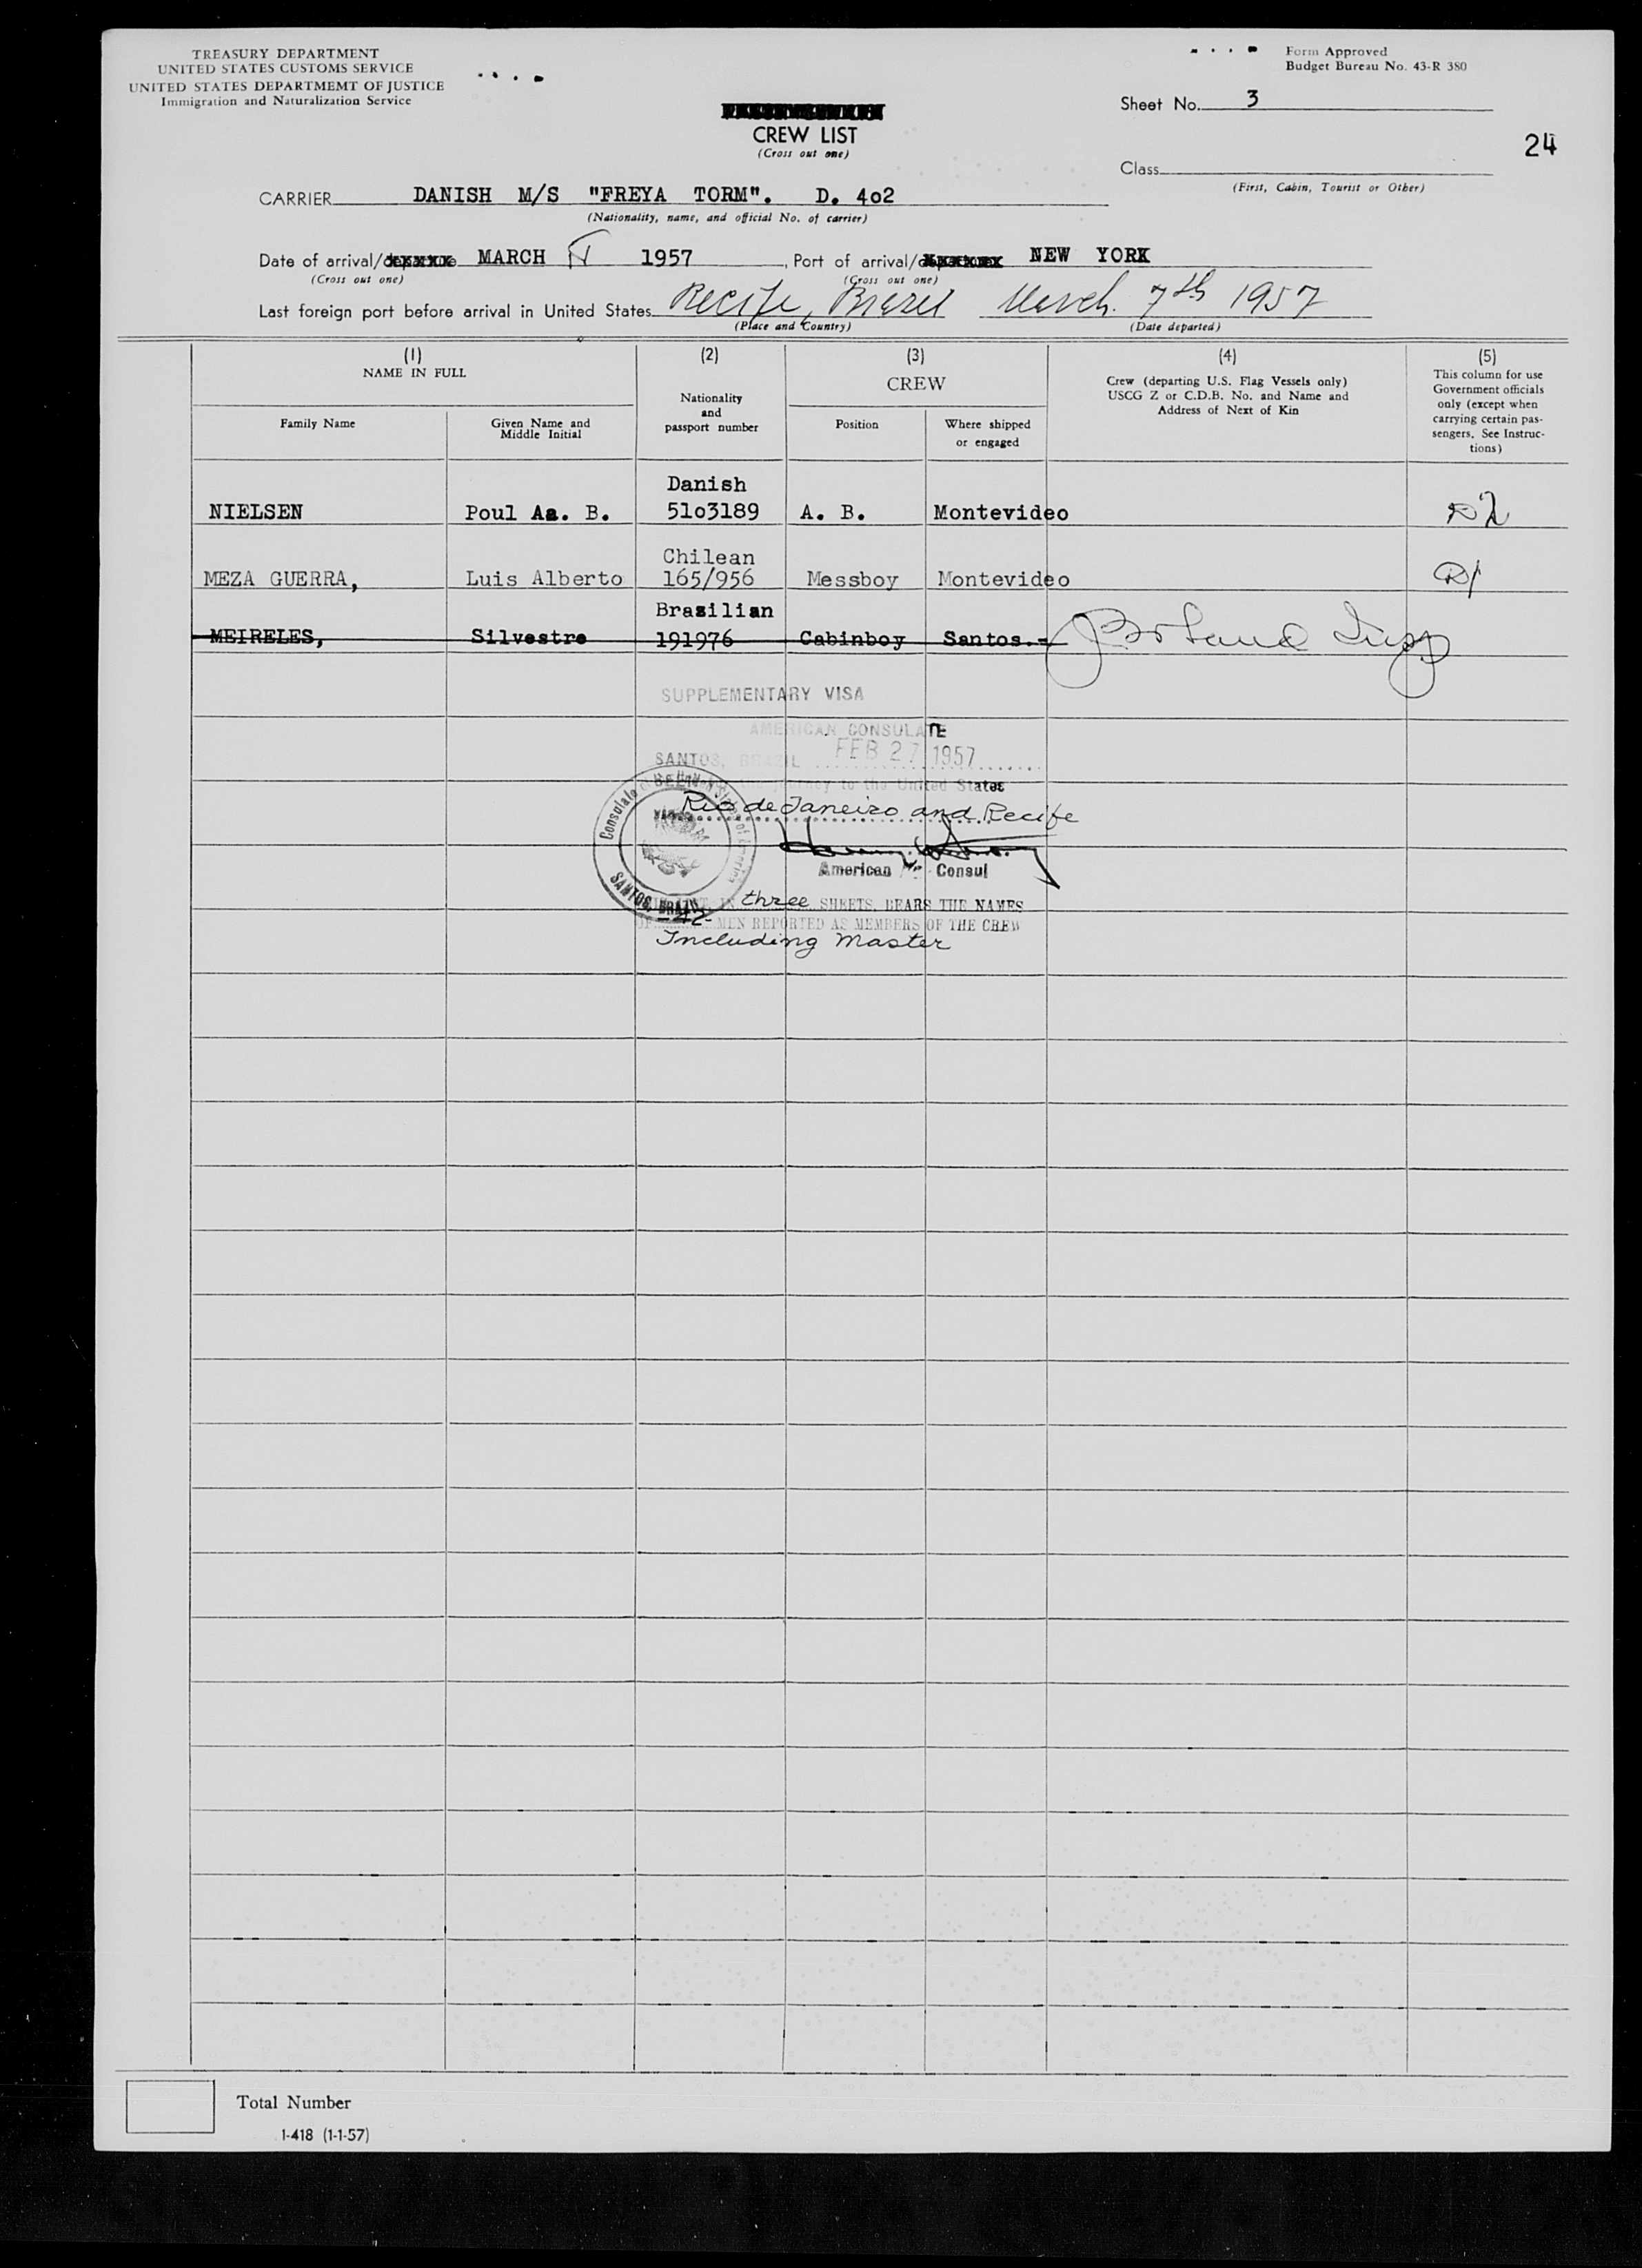 TREASURY DEPARTMENT
UNITED STATES CUSTOMS SERVICE
UNITED STATES DEPARTMEMT OF JUSTICE
Immigration and Naturalization Service
Form Approved
Budget Bureau No. 43-R 380
Sheet No. 3
24
CREW LIST
(Cross out one)
Class
(First, Cabin, Tourist or Other)
CARRIER DANISH M/S "FREYA TORM". D. 4o2
(Nationality, name, and official No. of carrier)
Date of arrival/ MARCH 1957, Port of arrival/ NEW YORK
(Cross out one) (Cross out one)
Last foreign port before arrival in United States Recife, Brazil March. 7th 1957
(Place and Country) (Date departed)
(1) (2) (3) (4) (5)
NAME IN FULL
Family Name
Given Name and
Middle Initial
Nationality
and
passport number
CREW
Position
Where shipped
or engaged
Crew (departing U.S. Flag Vessels only)
USCG Z or C.D.B. No. and Name and
Address of Next of Kin
This column for use
Government officials
only (except when
carrying certain pas-
sengers, See Instruc-
tions)
Danish
NIELSEN Poul Aa. B. 51o3189 A. B. Montevideo
Chilean
MEZA GUERRA, Luis Alberto 165/956 Messboy Montevideo
Brasilian
MEIRELES, Silvestre 191976 Cabinboy Santos.-
SUPPLEMENTARY VISA
AMERICAN CONSULATE
SANTOS, BRAZIL FEB 27 1957
the journey to the United States
Rio de Janeiro and Recife
American Consul
Consulate
SANTOS, BRAZIL
three SHEETS, BEARS THE NAMES
OF 42 MEN REPORTED AS MEMBERS OF THE CREW
Including Master
Total Number
I-418 (1-1-57)